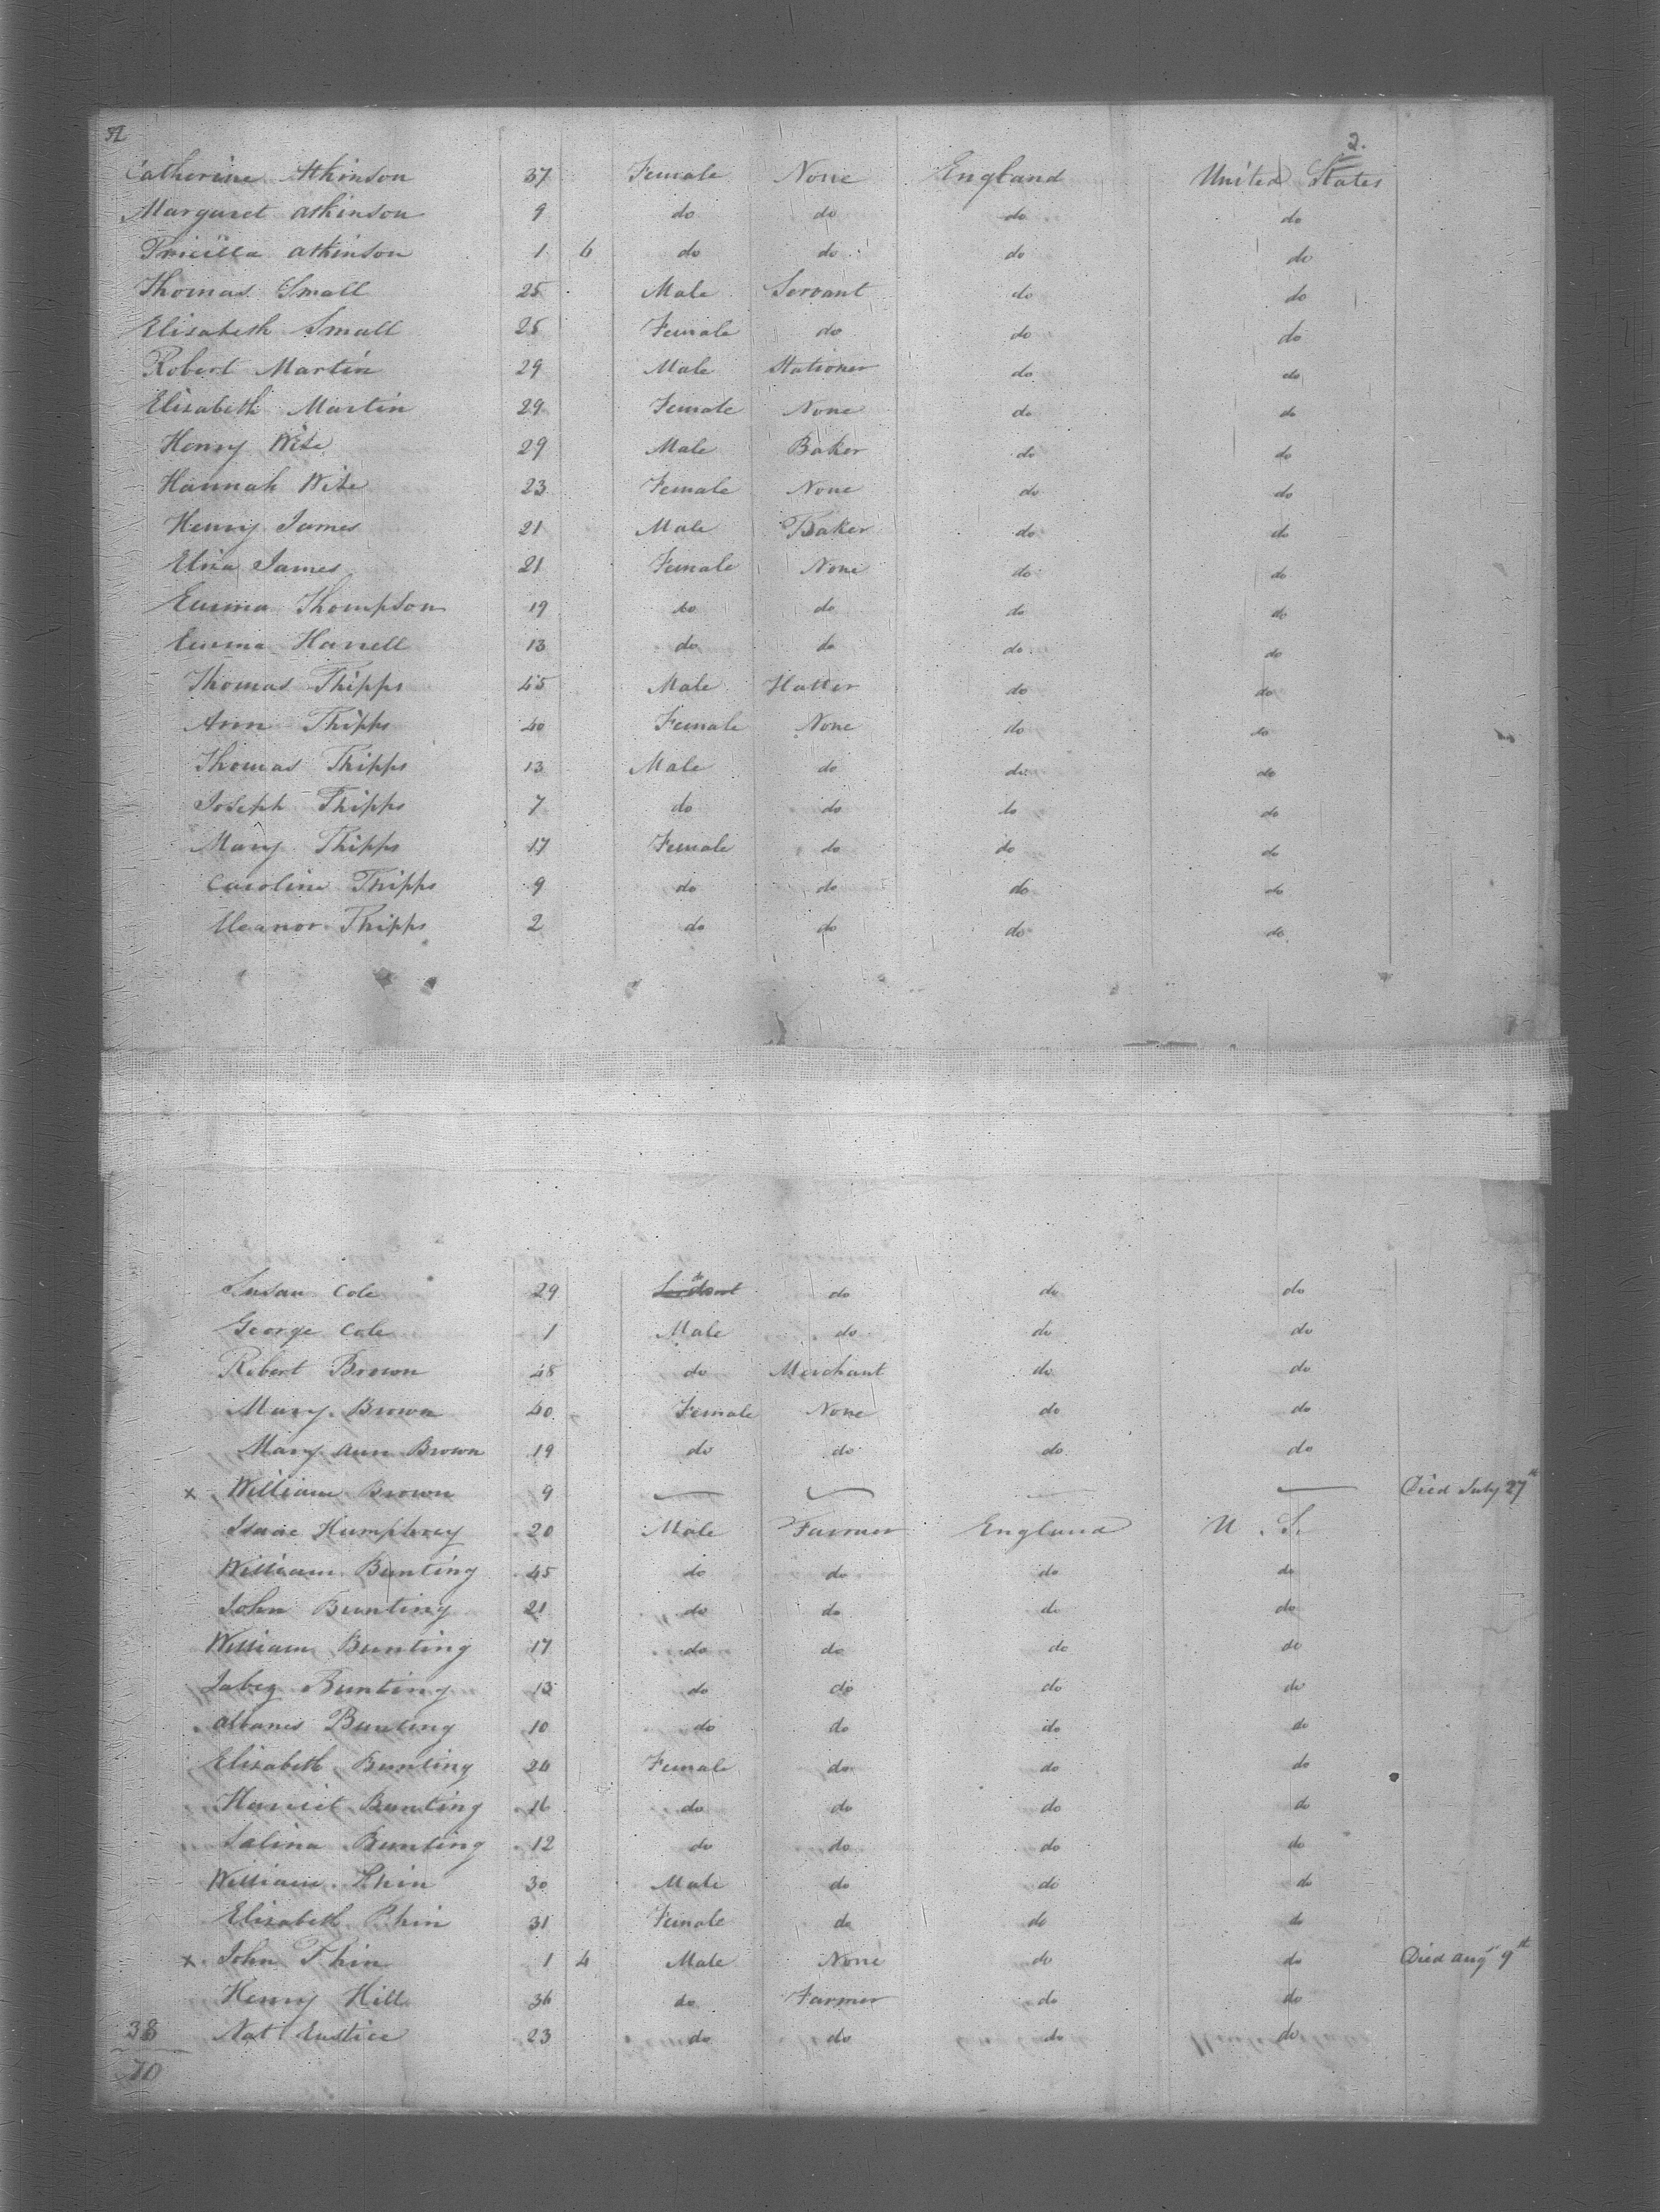 32
2.
Catherine Atkinson 37 Female None England United States
Margaret Atkinson 9 do do do do
Pricilla Atkinson 1 6 do do do do
Thomas Small 25 Male Servant do do
Elisabeth Small 25 Female do do do
Robert Martin 29 Male Stationer do do
Elisabeth Martin 29 Female None do do
Henry Wise 29 Male Baker do do
Hannah Wise 23 Female None do do
Henry James 21 Male Baker do do
Eliza James 21 Female None do do
Emma Thompson 19 do do do do
Emma Harrell 13 do do do do
Thomas Phipps 45 Male Hatter do do
Ann Phipps 40 Female None do do
Thomas Phipps 13 Male do do do
Joseph Phipps 7 do do do do
Mary Phipps 17 Female do do do
Caroline Phipps 9 do do do do
Eleanor Phipps 2 do do do do
Susan Cole 29 do do do do
George Cole 1 Male do do do
Robert Brown 48 do Merchant do do
Mary Brown 40 Female None do do
Mary Ann Brown 19 do do do do
x William Brown 9 — — — — Died July 27th
Isaac Humphrey 20 Male Farmer England U. S.
William Bunting 45 do do do do
John Bunting 21 do do do do
William Bunting 17 do do do do
Jabez Bunting 13 do do do do
Bunting 10 do do do do
Elisabeth Bunting 24 Female do do do
Harriet Bunting 16 do do do do
Salina Bunting 12 do do do do
William Phin 30 Male do do do
Elisabeth Phin 31 Female do do do
x John Phin 1 4 Male None do do Died Augt 9th
Henry Hill 36 do Farmer do do
38 Natl Eustice 23 do do do do
70